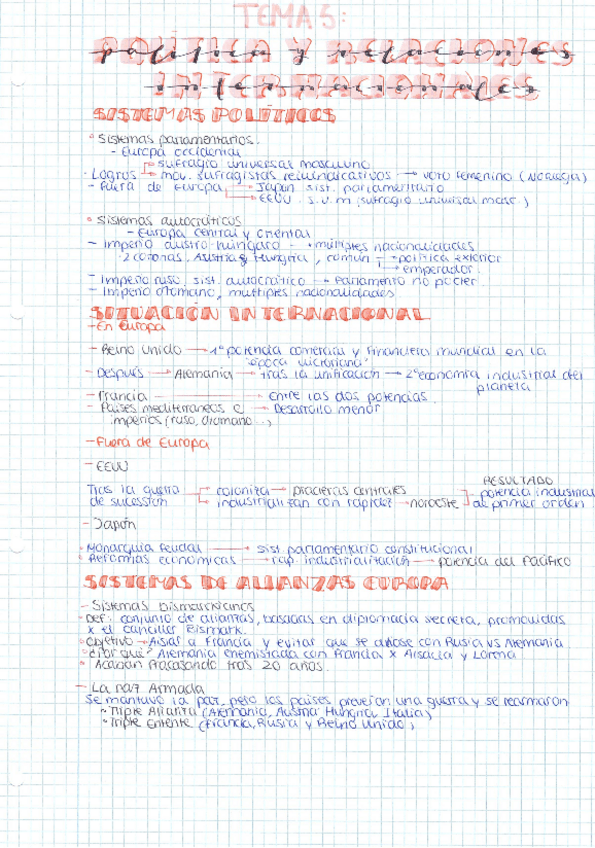 TEMA 5:
POLÍTICA Y RELACIONES
INTERNACIONALES
SISTEMAS POLÍTICOS
• Sistemas parlamentarios.
- Europa occidental
sufragio universal masculino
· Logros mov. sufragistas reivindicativos → voto femenino (Noruega)
- Fuera de Europa → Japón sist. parlamentario
→ EEUU. s.u.m (sufragio universal masc.)
• Sistemas autocráticos
- Europa central y oriental
- Imperio austro-húngaro → múltiples nacionalidades
· 2 coronas, Austria y Hungría, común → política exterior
→ emperador.
- Imperio ruso, sist. autocrático → Parlamento no poder.
- Imperio otomano, múltiples nacionalidades
SITUACIÓN INTERNACIONAL
- En Europa
- Reino Unido → 1ª potencia comercial y financiera mundial en la
época victoriana.
- Después → Alemania → tras la unificación → 2ª economía industrial del
planeta
- Francia → entre las dos potencias.
- Países mediterráneos e → Desarrollo menor
imperios (ruso, otomano...)
- Fuera de Europa
- EEUU
RESULTADO
Tras la guerra → coloniza → praderas centrales → potencia industrial
de sucesión → industrializan con rapidez → noroeste de primer orden
- Japón
· Monarquía feudal → sist. parlamentario constitucional
· Reformas económicas → rap. industrialización → potencia del Pacífico
SISTEMAS DE ALIANZAS EUROPA
- Sistemas bismarckianos
· Def: conjunto de alianzas, basadas en diplomacia secreta, promovidas
x el canciller Bismark.
· Objetivo → Aislar a Francia y evitar que se aliase con Rusia vs Alemania
· ¿Por qué? Alemania enemistada con Francia x Alsacia y Lorena
• Acaban fracasando tras 20 años.
- La Paz Armada
Se mantuvo la paz, pero los países preveían una guerra y se rearmaron
• Triple Alianza (Alemania, Austria Hungría, Italia)
• Triple Entente (Francia, Rusia y Reino Unido)